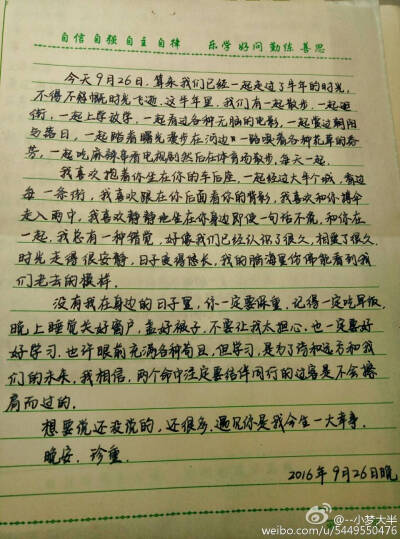 自信 自强 自主 自律 乐学 好问 勤练 善思
今天9月26日.算来我们已经一起走过了半年的时光,
不得不感慨时光飞逝.这半年里,我们有一起散步.一起逛
街,一起上学放学,一起看过各种无脑的电影,一起赏过朝阳
与落日,一起踏着曙光漫步在河边,一路嗅着各种花草的香
芳,一起吃麻辣
我喜欢抱着你坐在你的车后座.一起经过大半个城,看过
每一条街,我喜欢跟在你后面看你的背影,我喜欢和你携伞
走入雨中,我喜欢静静地坐在你身边即使一句话不说,和你在
一起,我总有一种错觉,好像我们已经认识了很久,相爱了很久.
时光走得很安静,日子变得悠长,我的脑海里仿佛能看到我
们老去的模样.
没有我在身边的日子里,你一定要保重,记得一定吃早饭,
晚上睡觉关好窗户,盖好被子,不要让我太担心,也一定要好
好学习,也许眼前充满各种苟且,但学习,是为了诗和远方和我
们的未来,我相信,两个命中注定要结伴同行的过客是不会擦
肩而过的.
想要说还没说的,还很多,遇见你是我今生一大幸事.
晚安.珍重.
2016年9月26日晚
@--小梦大半
weibo.com/u/5449550476